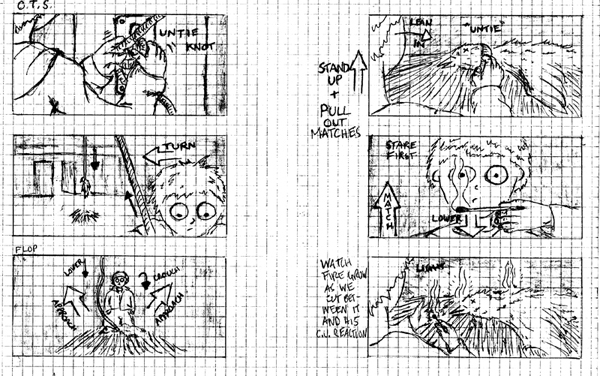 O.T.S.
UNTIE
KNOT
TURN
FLOP
LOWER
CROUCH
APPROACH
APPROACH
LEAN
IN
"UNTIE"
STAND
UP
+
PULL
OUT
MATCHES
STARE
FIRST
MATCH
LOWER
WATCH
FIRE GROW
AS WE
CUT BET-
WEEN IT
AND HIS
C.U. REACTION
LIGHT